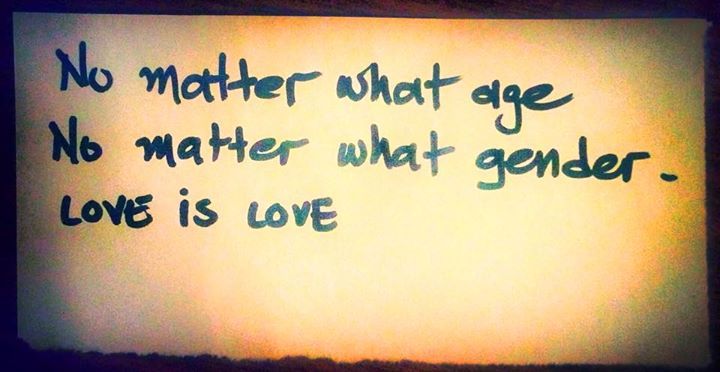 No matter what age
No matter what gender.
LOVE is LOVE